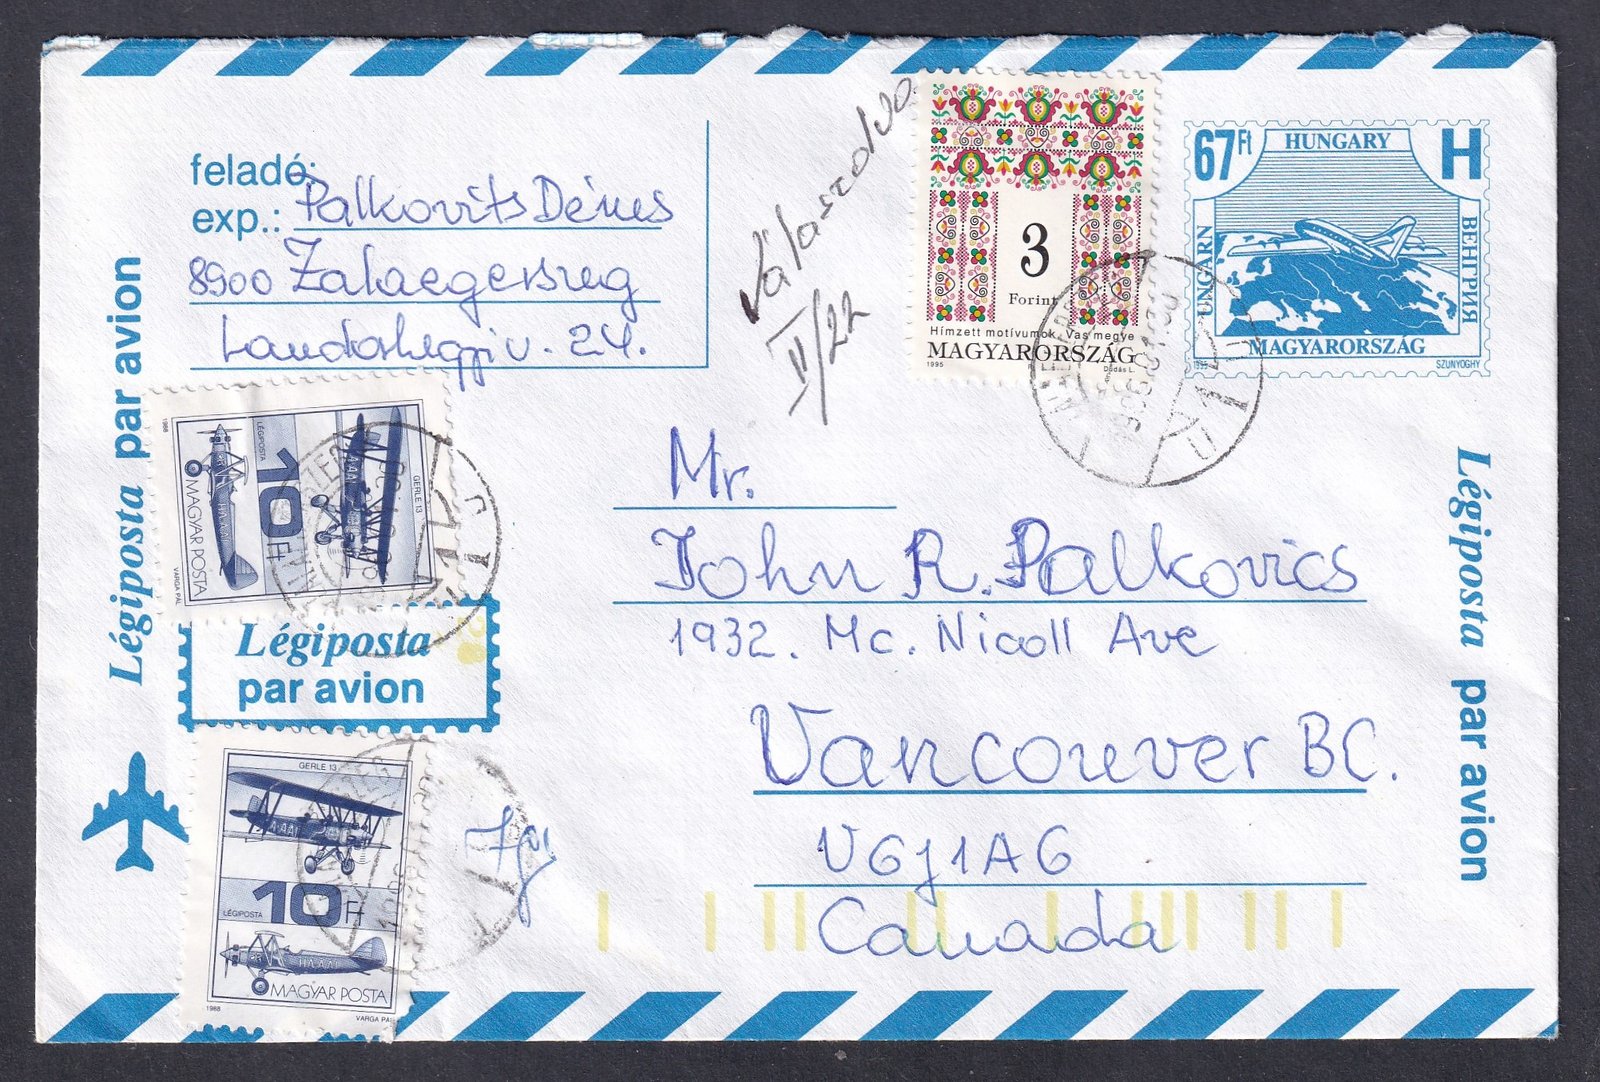 feladó:
exp.: Palkovits Dénes
8900 Zalaegerszeg
Landorhegyi u. 24.
Válaszolva
II/22
3
Forint
Hímzett motívumok, Vas megye
MAGYARORSZÁG
1995
Dudás L.
67Ft
HUNGARY
H
UNGARN
ВЕНГРИЯ
MAGYARORSZÁG
1995
SZUNYOGHY
Légiposta par avion
1988
LÉGIPOSTA
10Ft
GERLE 13
MAGYAR POSTA
VARGA PÁL
Légiposta
par avion
GERLE 13
LÉGIPOSTA
10Ft
MAGYAR POSTA
1988
VARGA PÁL
Mr.
John R. Palkovics
1932. Mc. Nicoll Ave
Vancouver BC.
V6J1A6
Canada
Légiposta par avion